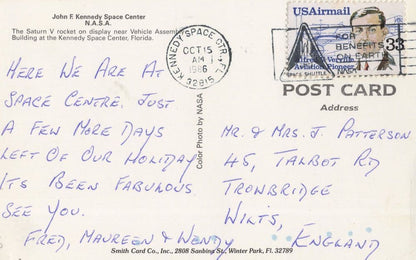 John F. Kennedy Space Center
N.A.S.A.
The Saturn V rocket on display near Vehicle Assembly
Building at the Kennedy Space Center, Florida.
KENNEDY SPACE CTR, FL
OCT 15
AM
1986
32815
USAirmail
33
Alfred V. Verville
Aviation Pioneer
SPACE SHUTTLE
FOR
BENEFITS
ON EARTH
NASA
POST CARD
Address
Color Photo by NASA
HERE WE ARE AT
SPACE CENTRE. JUST
A FEW MORE DAYS
LEFT OF OUR HOLIDAY
IT'S BEEN FABULOUS
SEE YOU.
FRED, MAUREEN & WENDY
MR. & MRS. J. PATTERSON
45, TALBOT RD
TROWBRIDGE
WILTS,
ENGLAND
Smith Card Co., Inc., 2808 Sanbina St., Winter Park, Fl. 32789